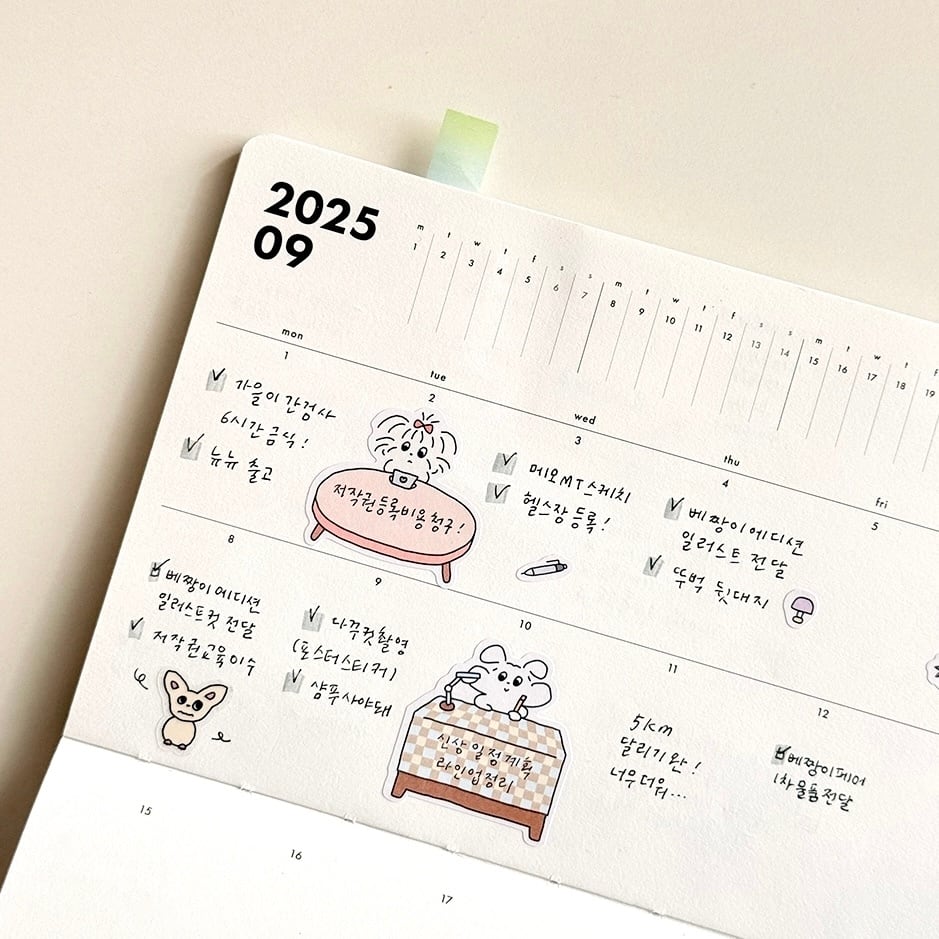 2025
09
m t w t f s s m t w t f s s m t w t f
1 2 3 4 5 6 7 8 9 10 11 12 13 14 15 16 17 18 19
mon
1
✓ 가을이 간검사
6시간 금식!
✓ 뉴뉴 출고
tue
2
저작권등록비용 청구!
wed
3
✓ 메오MT 스케치
✓ 헬스장 등록!
thu
4
✓ 베짱이 에디션
일러스트 전달
✓ 뚜벅 뒷대지
fri
5
8
✓ 베짱이 에디션
일러스트컷 전달
✓ 저작권교육이수
9
✓ 다꾸컷촬영
(포스터스티커)
✓ 샴푸사야돼
10
신상일정계획
라인업정리
11
5km
달리기완!
너무더워...
12
✓ 베짱이페어
1차물품전달
15
16
17